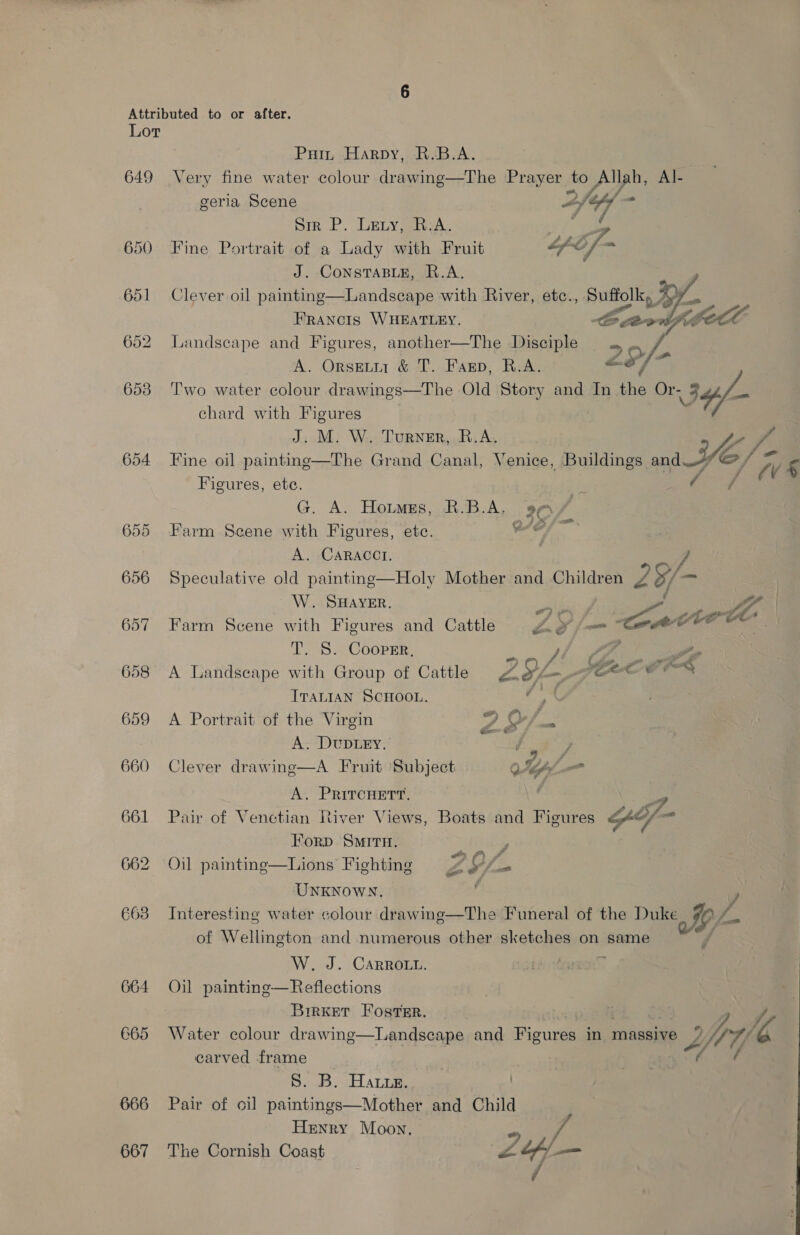 6
Attributed to or after.
Lot
Phil Hardy, R.B.A.
649 Very fine water colour drawing—The Prayer to Allah, Al-
geria Scene
Sir P. Lely, R.A.
650 Fine Portrait of a Lady with Fruit
J. Constable, R.A.
651 Clever oil painting—Landscape with River, etc., Suffolk,
Francis Wheatley.
652 Landscape and Figures, another—The Disciple
A. Orselli & T. Faed, R.A. 28/-
653 Two water colour drawings—The Old Story and In the Or-
chard with Figures
J. M. W. Turner, R.A.
654 Fine oil painting—The Grand Canal, Venice, Buildings and
Figures, etc.
G. A. Holmes, R.B.A.
655 Farm Scene with Figures, etc.
A. Caracci.
656 Speculative old painting—Holy Mother and Children 28/-
W. Shayer.
657 Farm Scene with Figures and Cattle 28/-
T. S. Cooper,
658 A Landscape with Group of Cattle 28/-
Italian School.
659 A Portrait of the Virgin 28/-
A. Dudley.
660 Clever drawing—A Fruit Subject
A. Pritchett.
661 Pair of Venetian River Views, Boats and Figures
Ford Smith.
662 Oil painting—Lions Fighting 28/-
Unknown.
663 Interesting water colour drawing—The Funeral of the Duke
of Wellington and numerous other sketches on same
W. J. Carroll.
664 Oil painting—Reflections
Birket Foster.
665 Water colour drawing—Landscape and Figures in massive
carved frame
S. B. Halle.
666 Pair of oil paintings—Mother and Child
Henry Moon.
667 The Cornish Coast